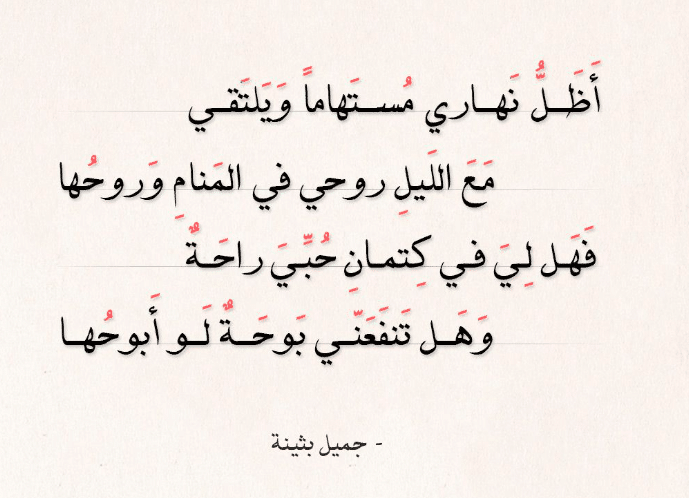 أَظَــلُّ نَهــاري مُســتَهاماً وَيَلتَقــي
مَعَ اللَيلِ روحي في المَنامِ وَروحُها
فَهَـل لِـيَ فـي كِتمـانِ حُبِّـيَ راحَـةٌ
وَهَــل تَنفَعَنّــي بَوحَــةٌ لَــو أَبوحُهــا
- جميل بثينة